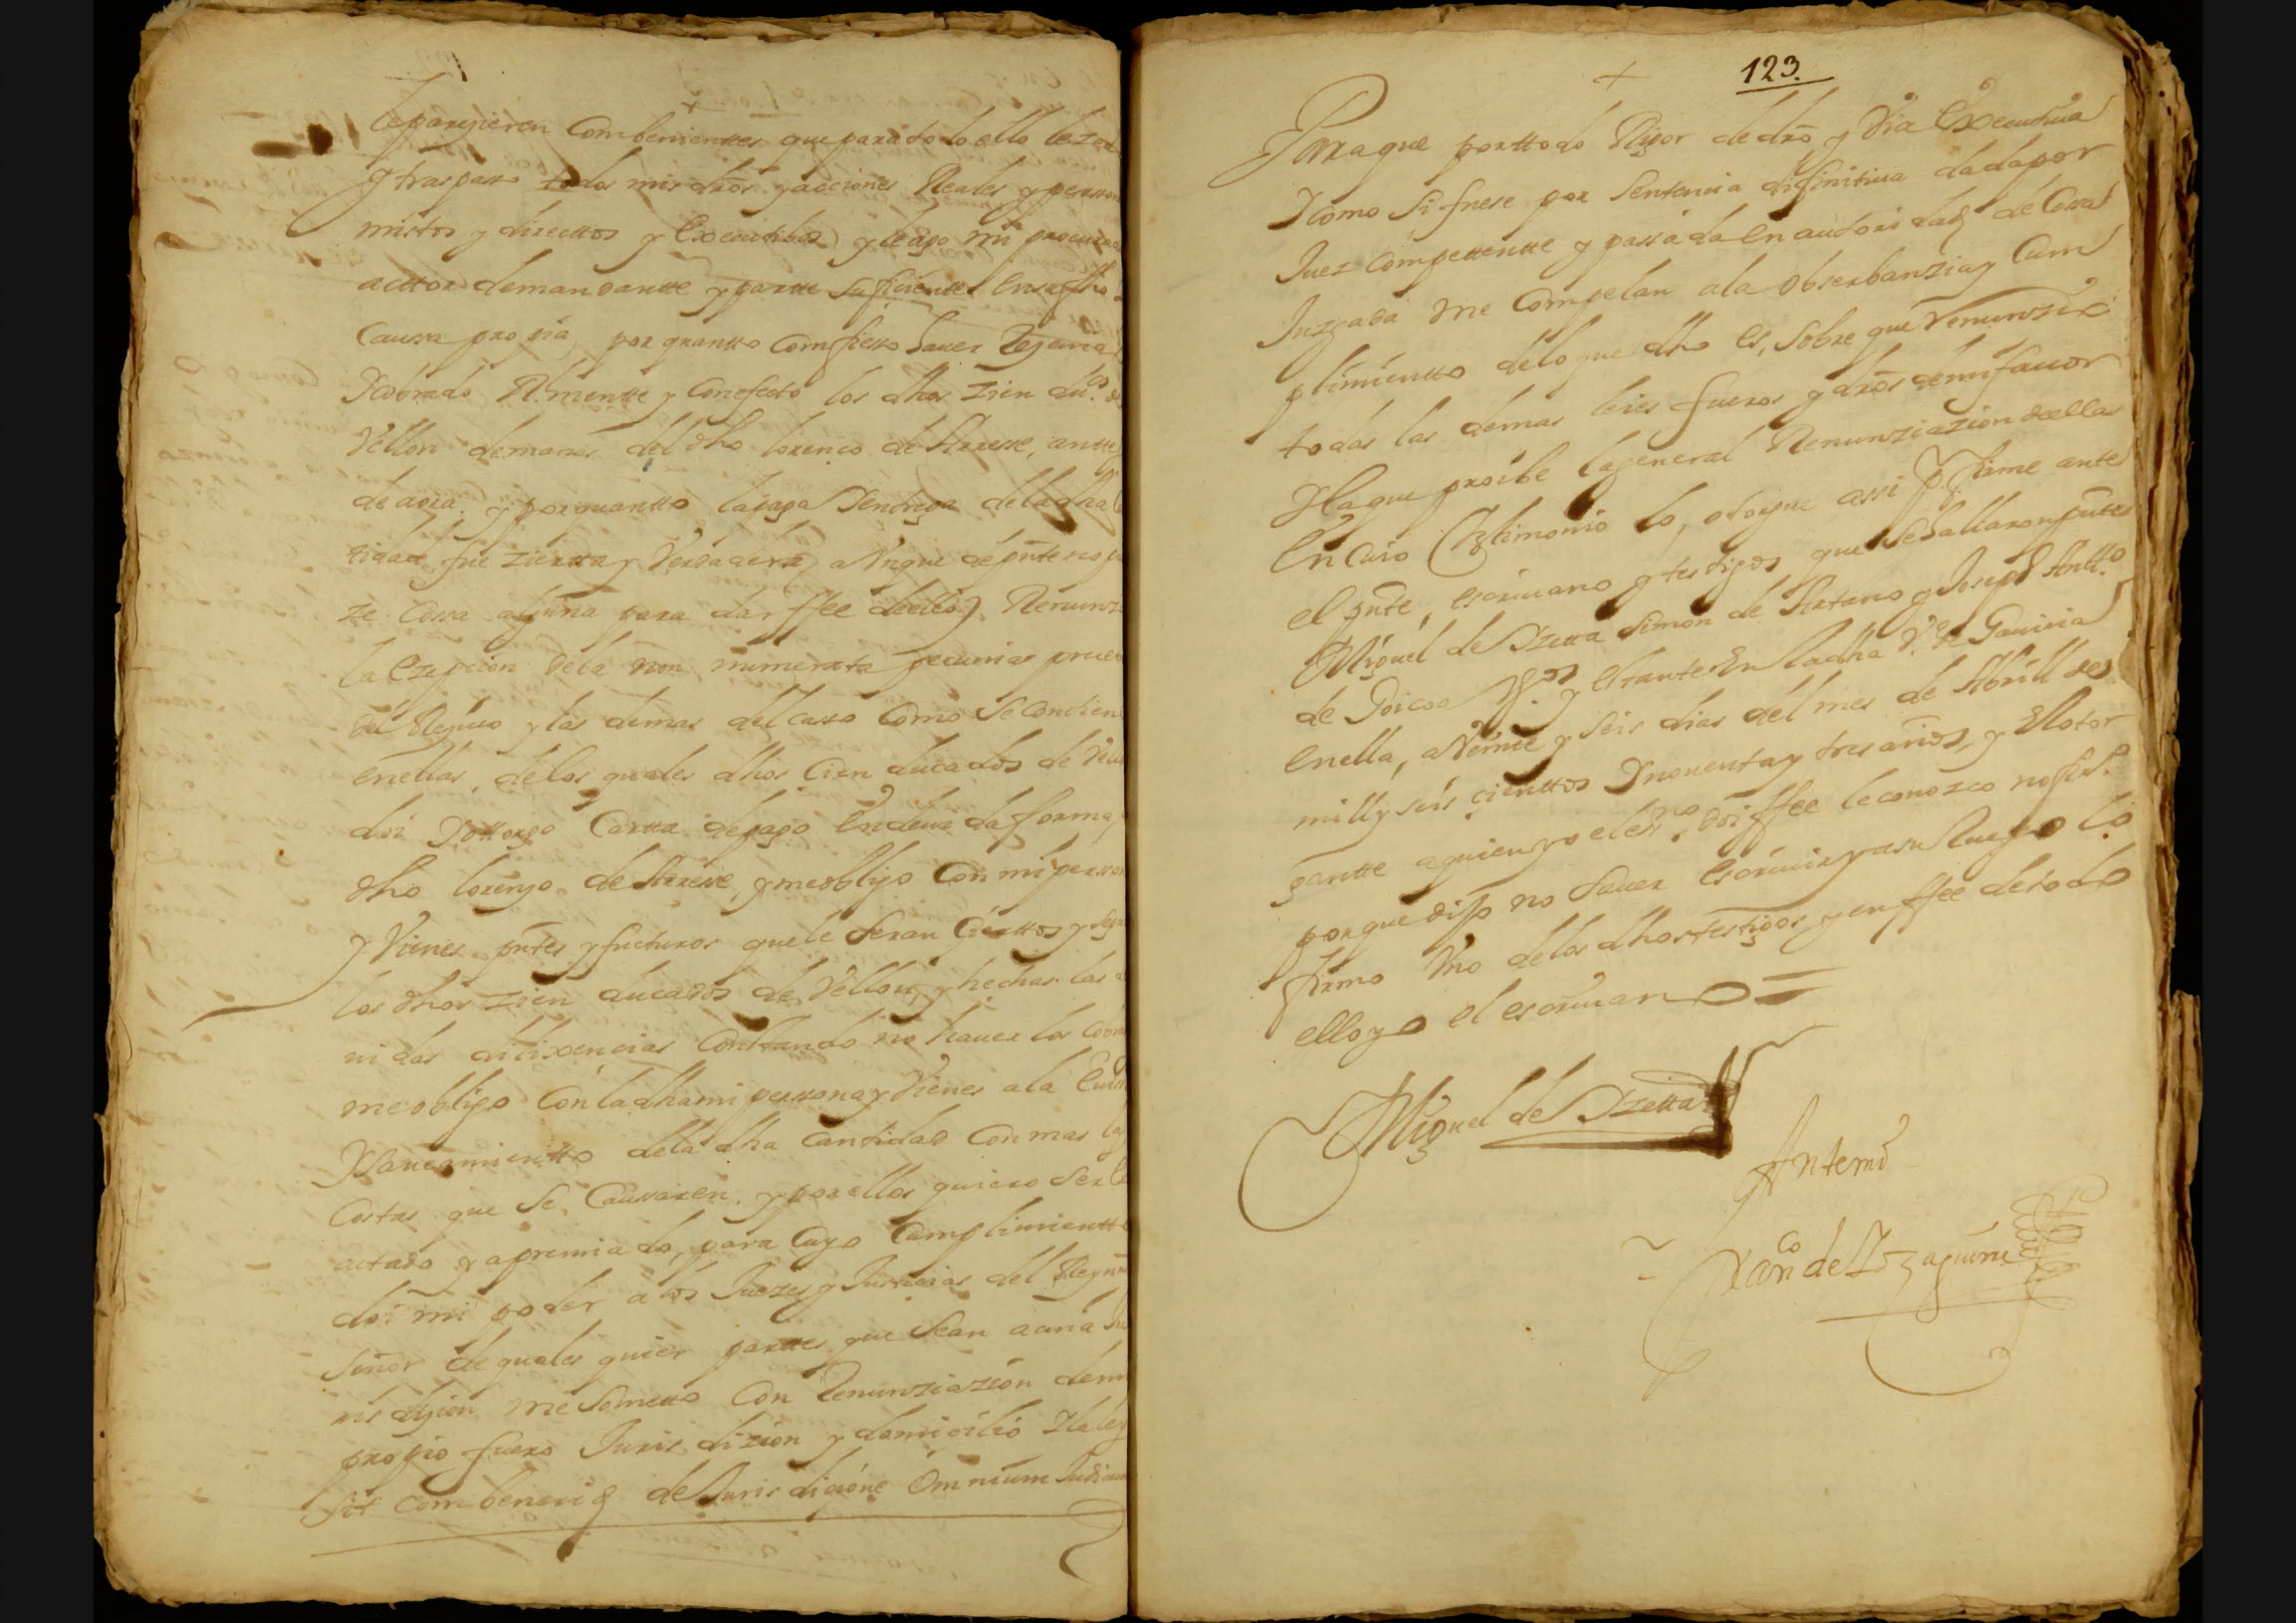 le parezieren Combenienttes que para todo ello le zedo
y traspasso todos mis dros y acciones Reales y persson
mistos y directtos y Executibos y le ago mi procurad
acttor demandantte y partte suficientte En su fho
Caussa propia, por quantto Confiesso Sauer Reziuid
Y Cobrado Rl.mentte y Con efecto los dhos Zien du.os de
Vellon de manos del dho lorenco de Aresse, anttes
de aora. y por quantto la paga Y entrega de la dha
tidad fue ziertta y Verdadera aVnque de pntte no p
ze Cossa alguna para dar ffee de ello, Renunz
la Ezepcion de la non numerata pecunias prueu
del Reziuo y las demas del casso Como se Condien
en ellas, de los quales dhos Cien ducados de Vell
doi Y ottorgo Cartta de pago En deuida forma,
dho lorenzo de Aresse, y me obligo Con mi persson
y Vienes pntes y fucturos que le seran Ciertos y segu
los dhos zien ducados de Vellon, y hechas las
nidas dilixencias Constando no hauer los Cobr
me obligo Con la dha mi perssona y Vienes a la Euic
Y Saneamientto de la dha Cantidad Con mas las
Costas que se Caussaren. y por ellos quiero ser Ex
actado y apremiado, para Cuyo Cumplimientto
doi mi poder a los Juezes y Justicias del Rey nro
Señor de quales quier parttes que sean a cuia Ju
risdizion me Sometto Con Renunziazion de mi
propio fuero Jurisdizion y domicilio Y la ley
sit combenerid de Jurisdicione Omnium Judicun
123.
Para que por ttodo Rigor de dro y Via Executiua
Y Como Si fuese por Sentencia difinitiua dada por
Juez Competentte y passada en autoridad de Cossa
Juzgada me Compelan a la Obserbanzia y Cum
plimientto de lo que dho es, Sobre que Renunzie
todas las demas leies fueros y dros de mi fauor
Y la que proibe la general Renunziazion de ellas
En Cuio testimonio lo, otorgue assi Y firme ante
el pnte, escriuano y testigos que Se allaron pntes
Miguel de Yzetta Simon de Artano y Joseph Antt.o
de Goicoa Vz.os y Estantes En la dha V.a de Gauiria
En ella, a Veinte y Seis dias del mes de Abrill de
mill y seis cienttos Y nouenta y tres años, y El otor
gantte a quien yo el es.no doi ffee le conozco no fir.o
porque dijo no Sauer Escriuir y a su Ruego lo
firmo Vno de los dhos testigos y en ffee de todo
ello yo el escriuano =
Miguel de Yzetta
Ante mi
Fran.co de Yzaguirre